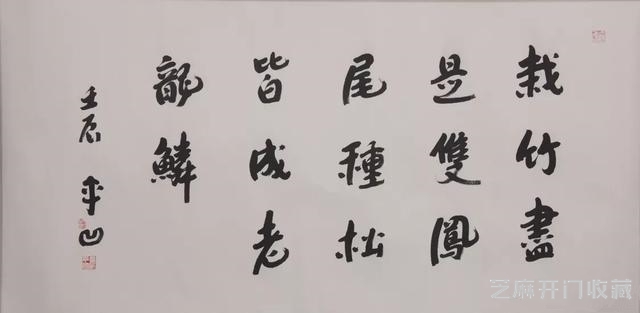 栽竹盡
是雙鳳
尾種松
皆成老
龍鱗
壬辰 平凹
芝麻开门收藏